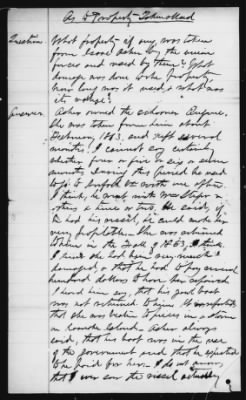 As to Property Taken &c
Question
What property if any, was taken
from Isaac Asher by the union
forces and used by them? What
damage was done to the property,
how long was it used, & what was
its value?
Answer
Asher owned the schooner
She was taken from him about
February, 1863, and kept several
months. I cannot say certainly
whether four or five or six or seven
months. During this period he used
to go to Norfolk
I think, he went with
He said, if
he had his vessel, he could make his
very profitable. She was returned
to him in the of 1863, I think.
I heard she had been very much
damaged, & that he had to pay several
hundred dollars to have her repaired
I heard him say, that his yawl boat
was not returned to him. It was reported
that she was beaten to pieces in a storm
on Roanoke Island. Asher always
said, that his boat was in the use
of the government and that he expected
to be paid for her. I do not know,
that I ever saw the vessel actually